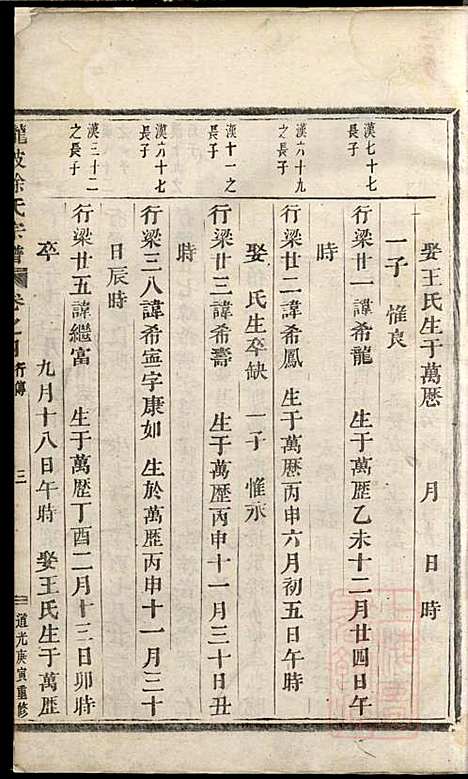 娶王氏生于萬厯 月 日 時
一子 惟良
漢七十七
長子
行梁廿一諱希龍 生于萬歷乙未十二月廿四日午
時
漢六十九
之長子
行梁廿二諱希鳳 生于萬歷丙申六月初五日午時
娶 氏生卒缺 一子 惟永
漢十一之
長子
行梁廿三諱希壽 生于萬歷丙申十一月三十日丑
時
漢六十七
長子
行梁三八諱希寍字康如 生於萬歷丙申十一月三十
日辰時
漢三十二
之長子
行梁廿五諱繼富 生于萬歷丁酉二月十三日卯時
卒 九月十八日午時 娶王氏生于萬歷
徐氏宗譜 行傳 三 道光庚寅重修